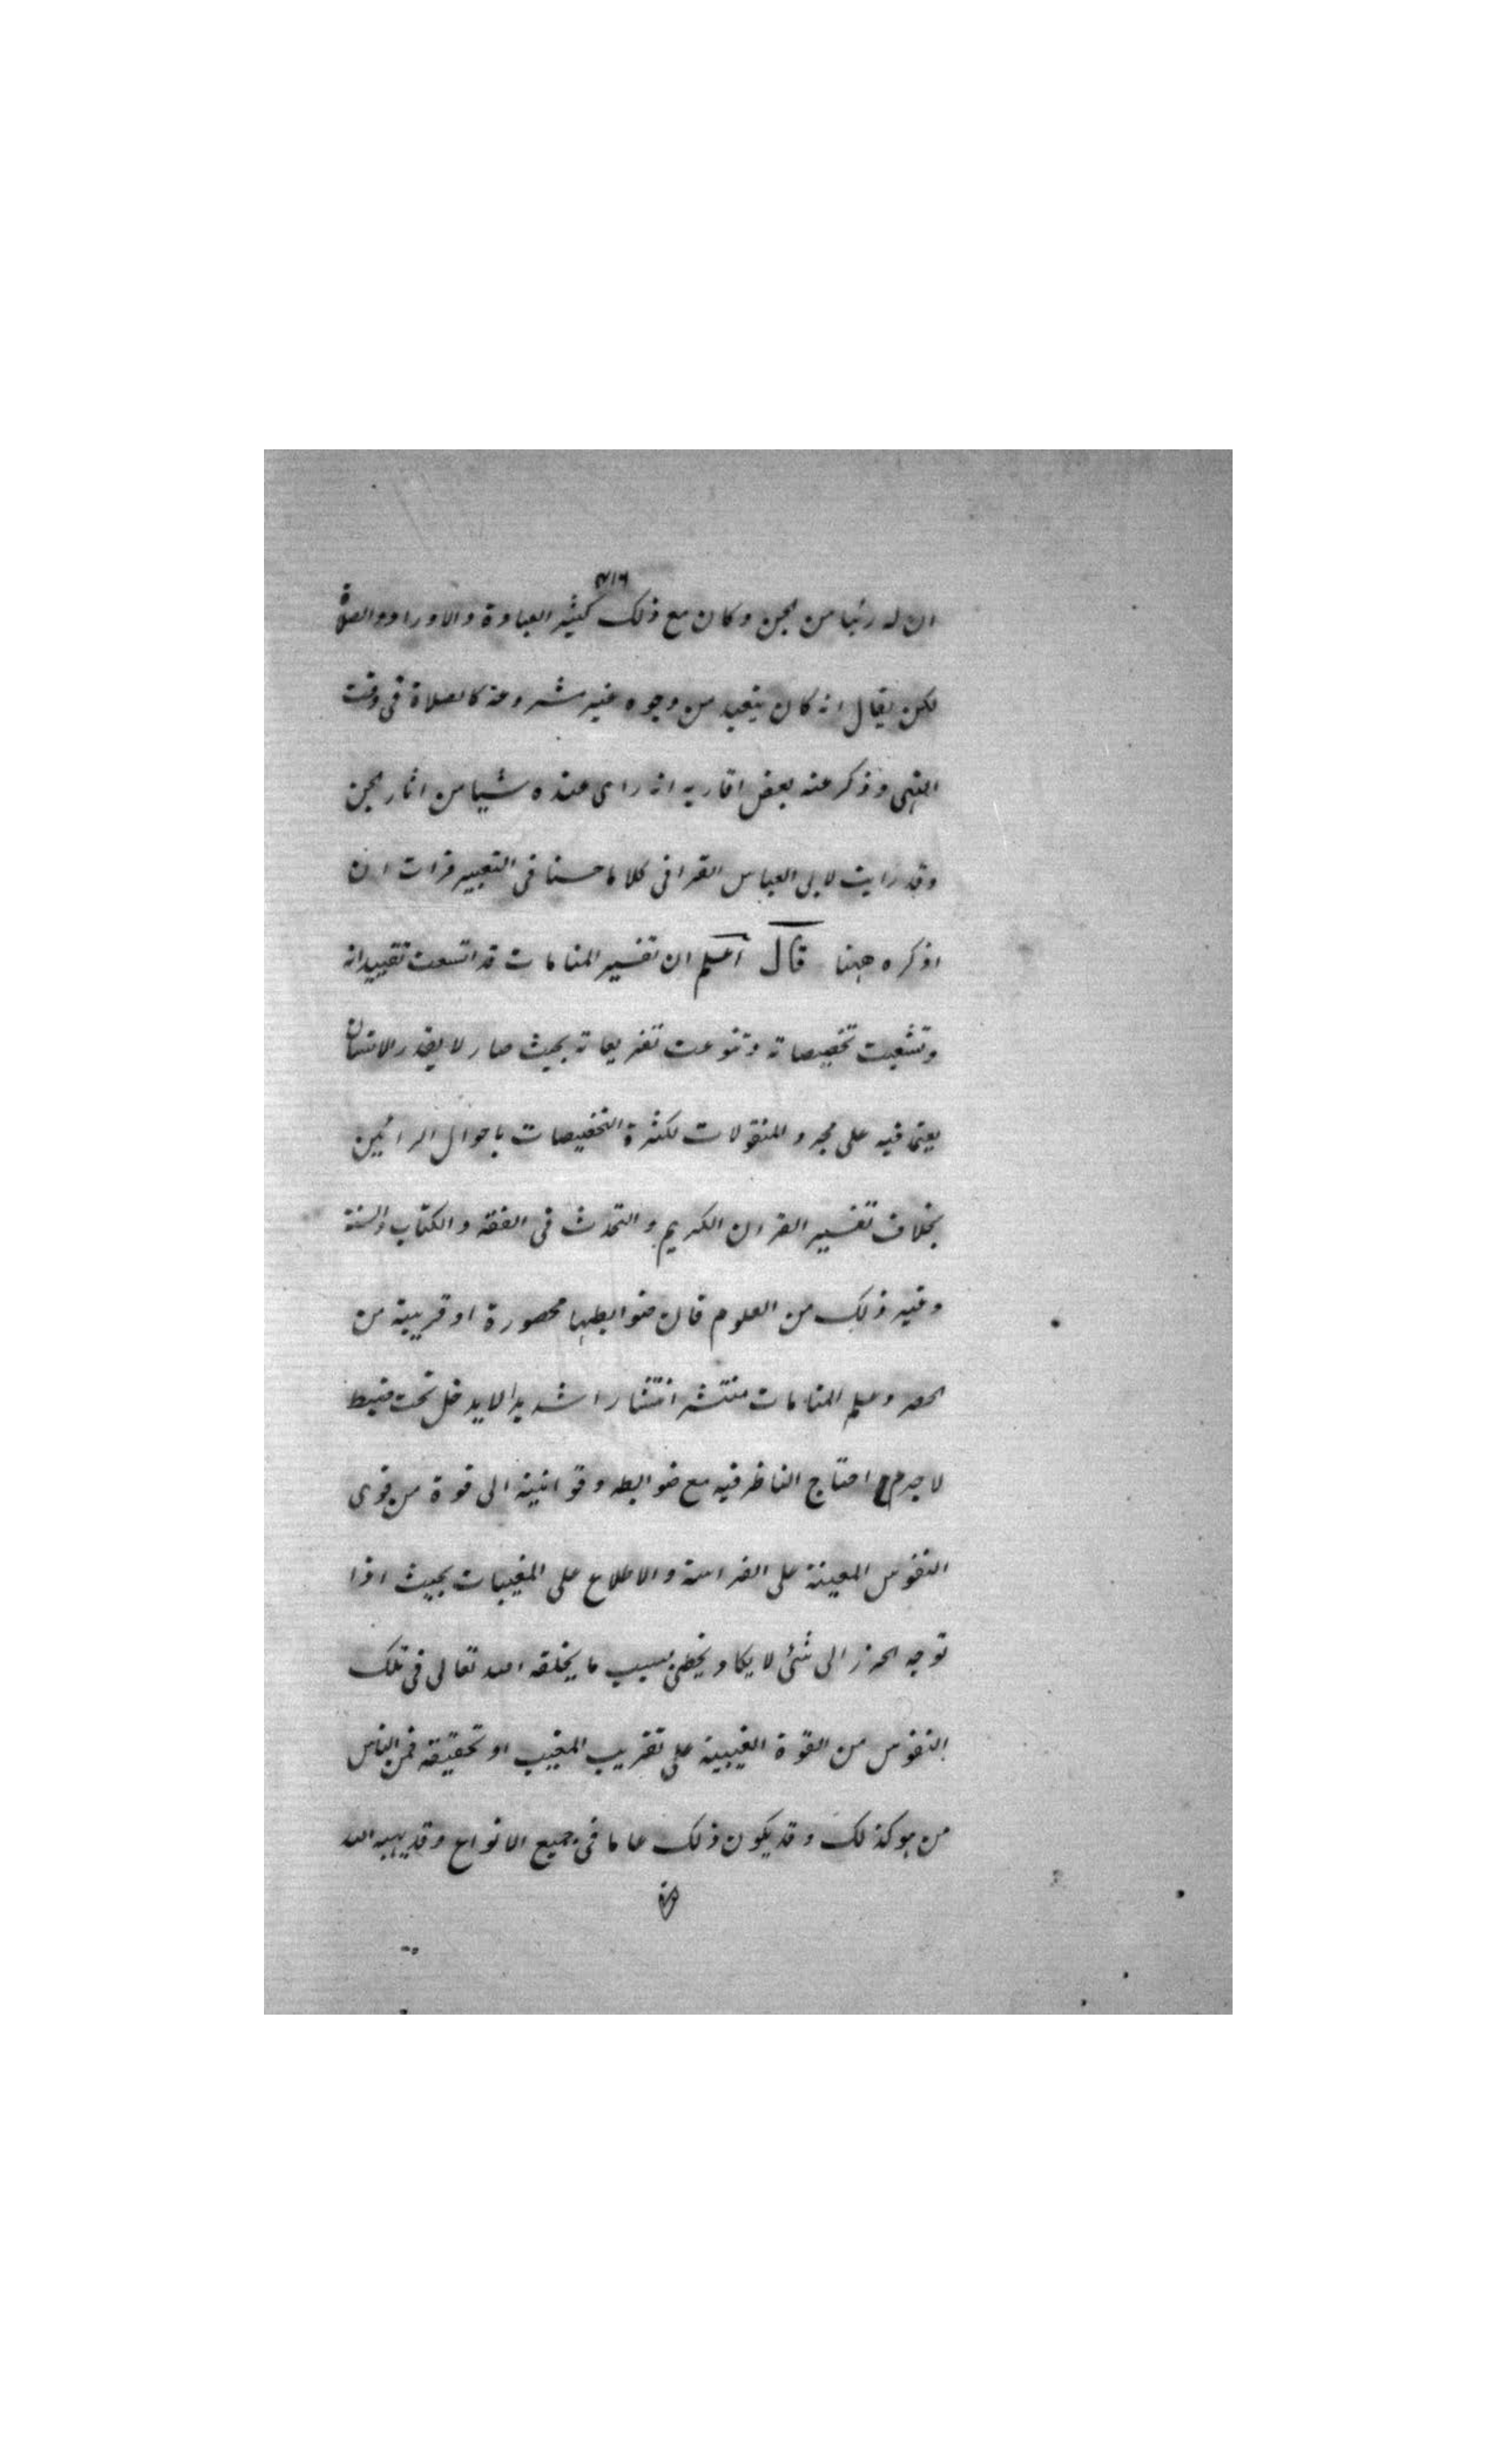 ٣١٦
ان له رئيا من الجن وكان مع ذلك كثير العبادة والاوراد والصلاة
لكن يقال انه كان يتعبد من وجوه غير مشروعة كالصلاة فى وقت
النهى وذكر عنه بعض اقاربه انه راى عنده شيا من اثار الجن
وقد رايت لابى العباس القرافى كلاما حسنا فى التعبير فرات ان
اذكره ههنا قال اعلم ان تفسير المنامات قد اتسعت تقييداته
وتشعبت تخصيصاته وتنوعت تفريعاته بحيث صار لا يقدر الانسان
يعتمد فيه على مجرد المنقولات لكثرة التخصيصات باحوال الرائين
بخلاف تفسير القران الكريم والتحدث فى الفقه والكتاب والسنة
وغير ذلك من العلوم فان ضوابطها محصورة او قريبة من
الحصر وعلم المنامات منتشر انتشارا شديدا لا يدخل تحت ضبط
لا جرم احتاج الناظر فيه مع ضوابطه وقوانينه الى قوة من قوى
النفوس المعينة على الفراسة والاطلاع على المغيبات بحيث اذا
توجه الحزر الى شئ لا يكاد يخطئ بسبب ما يخلقه الله تعالى فى تلك
النفوس من القوة الغيبية على تقريب المغيب او تحقيقه فمن الناس
من هو كذلك وقد يكون ذلك عاما فى جميع الانواع وقد يهبه الله